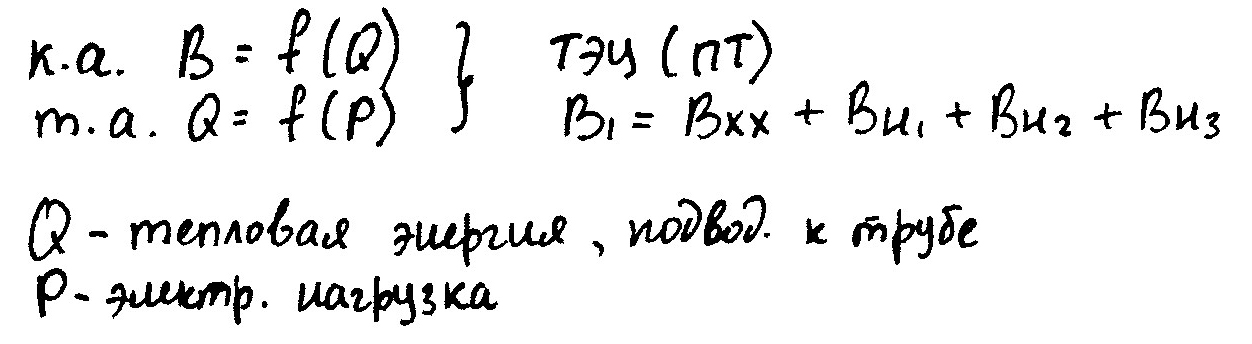 к.а. B = f(Q) } ТЭЦ (ПТ)
т.а. Q = f(P) B₁ = Bхх + Bн₁ + Bн₂ + Bн₃
Q - тепловая энергия, подвод. к трубе
P - электр. нагрузка